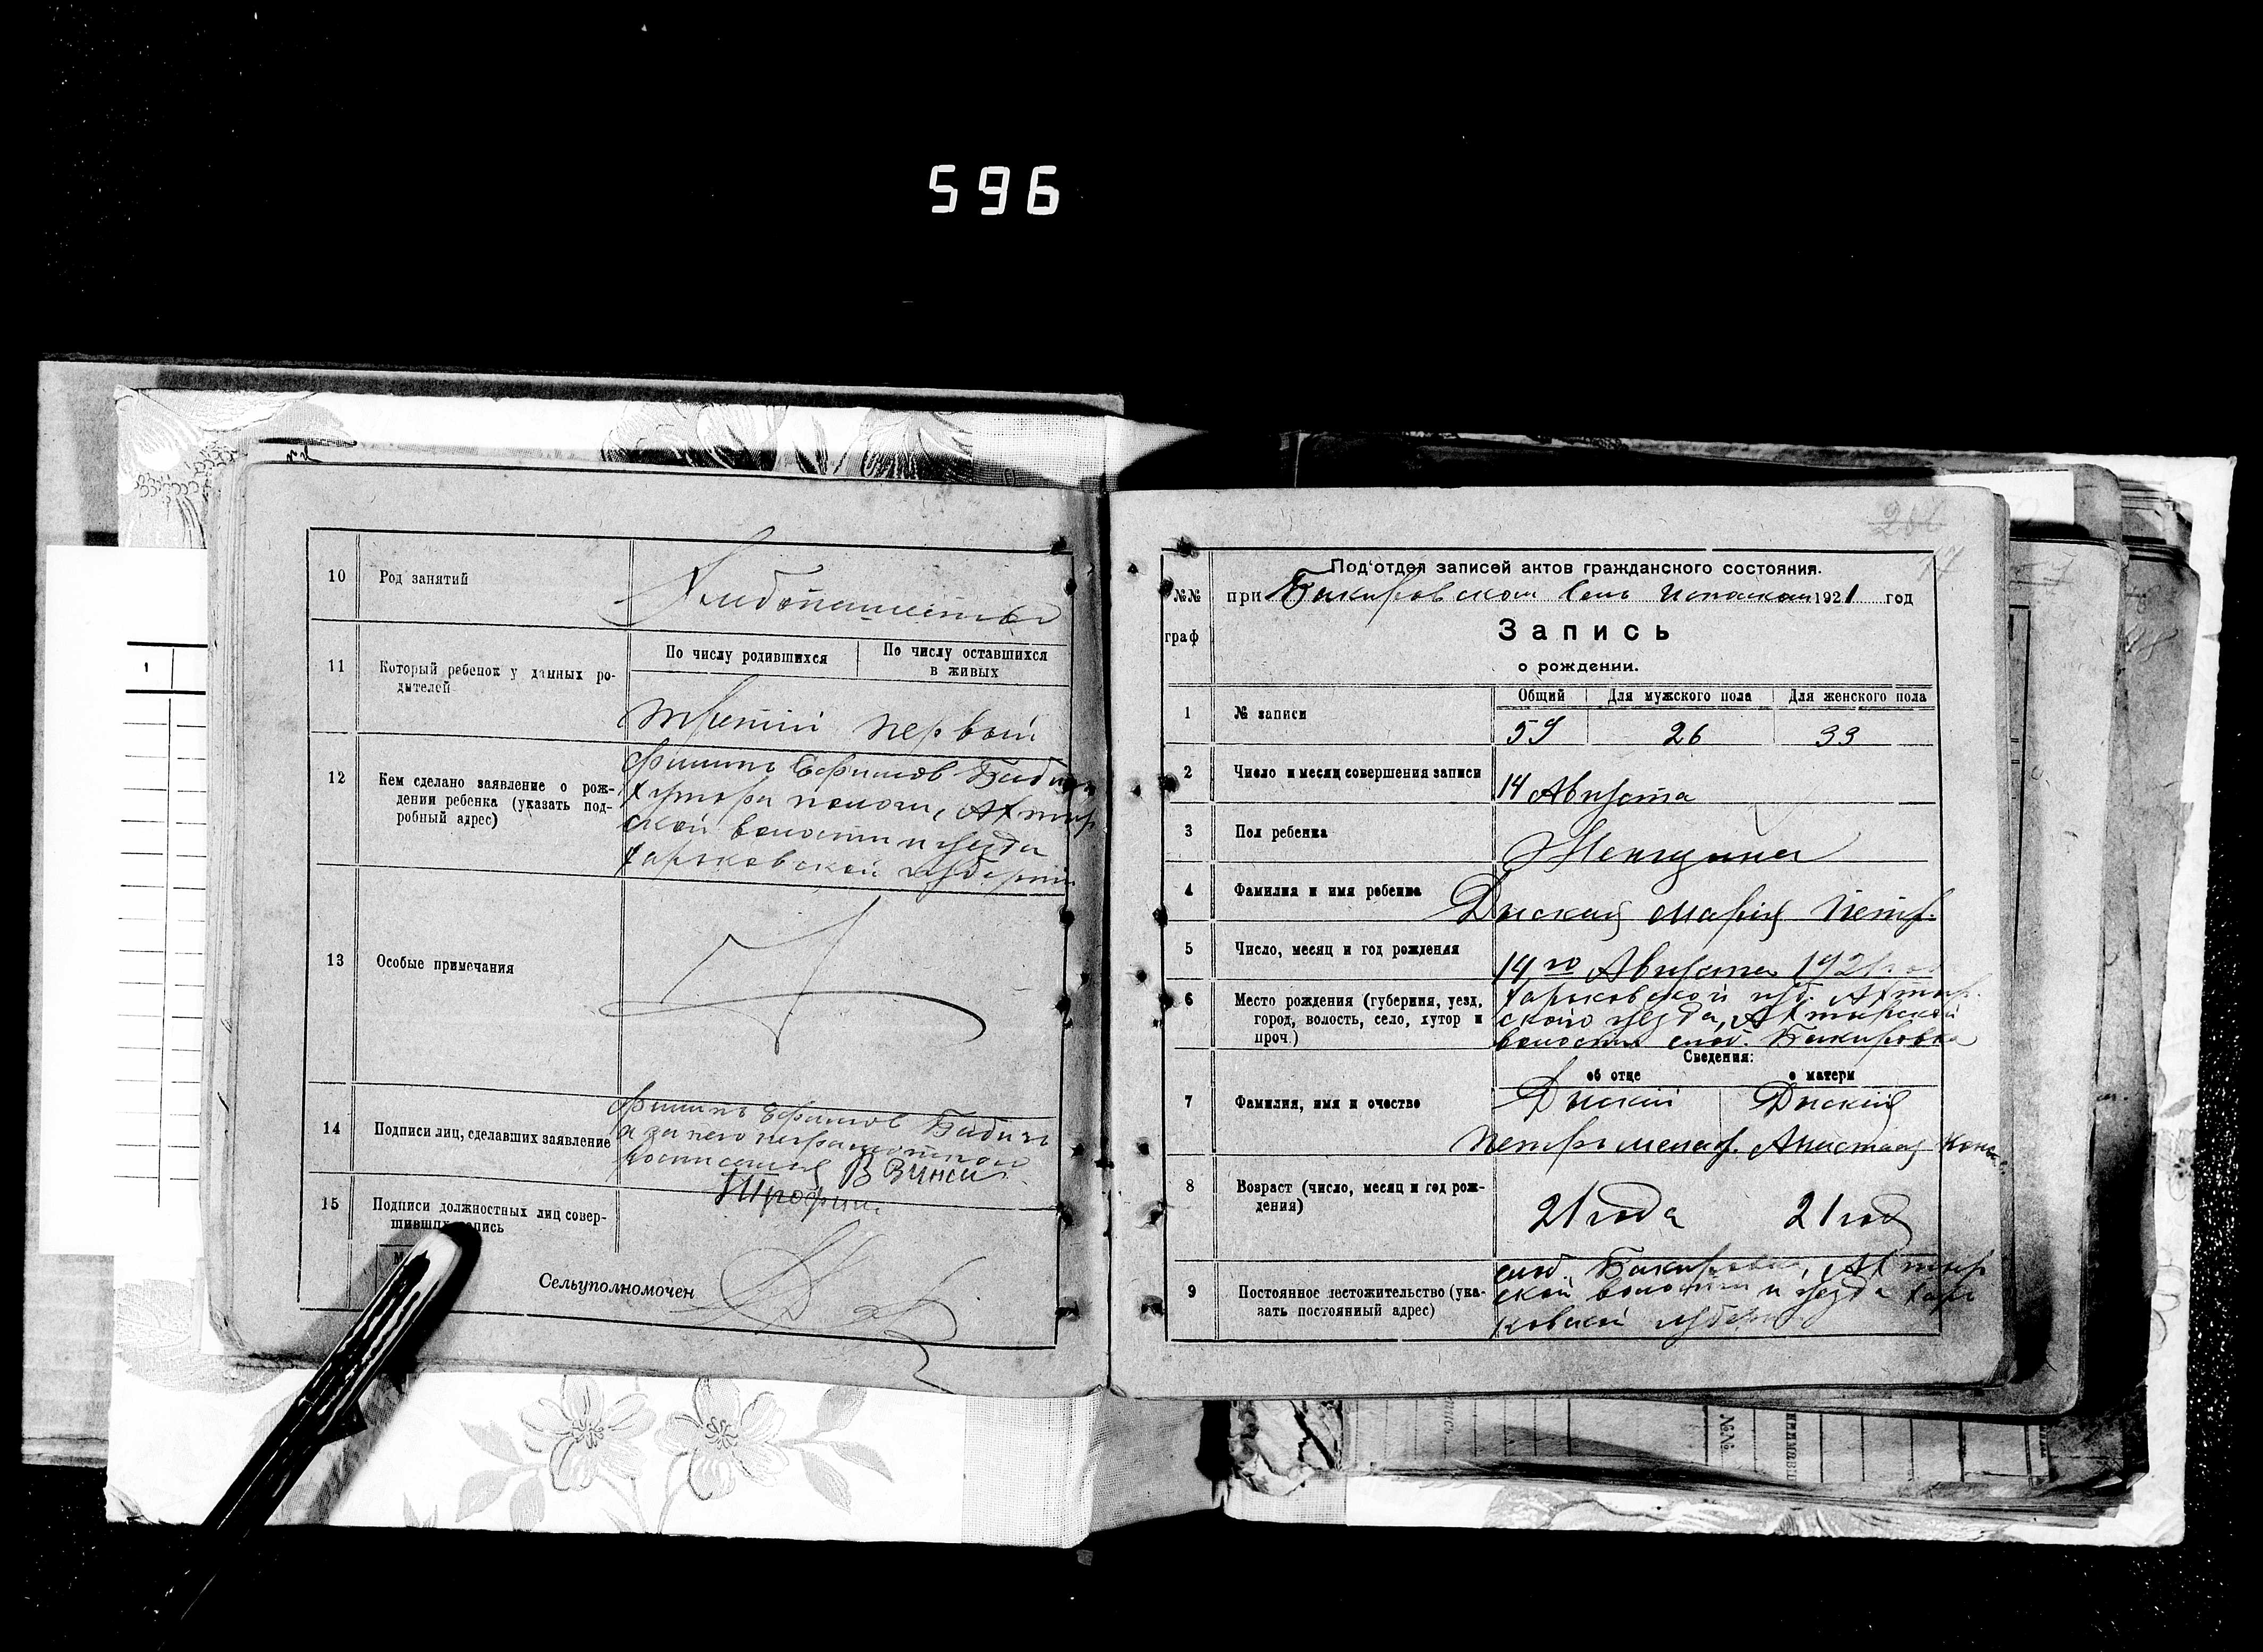 596
10 Род занятий Хлебопашество
11 Который ребенок у данных ро-
дителей
По числу родившихся
По числу оставшихся
в живых
третий первый
12 Кем сделано заявление о рож-
дении ребенка (указать под-
робный адрес)
Филипъ Ефимов
хутора
ской волости и уезда
харьковской губерни
13 Особые примечания
14 Подписи лиц, сделавших заявление
Филипъ Ефимов
и за него неграмотного
15 Подписи должностных лиц совер-
шивших запись
Сельуполномочен
Под'отдел записей актов гражданского состояния.
№№
граф
при Бакировском 1921 год
Запись
о рождении.
Общий Для мужского пола Для женского пола
1 № записи 59 26 33
2 Число и месяц совершения записи 14 Августа
3 Пол ребенка Женщина
4 Фамилия и имя ребенка Дыская Марія Петр.
5 Число, месяц и год рождения 14го Августа 1921
6 Место рождения (губерния, уезд,
город, волость, село, хутор и
проч.)
харьковской губ. Ахтыр.
ского уезда, Ахтырской
волости слоб. Бакировка
Сведения:
об отце о матери
7 Фамилия, имя и очество
Дыский Дыская
Петр Анастасия
8 Возраст (число, месяц и год рож-
дения)
21 года 21 год
9 Постоянное местожительство (ука-
зать постоянный адрес)
слоб. Бакировка, Ахтыр
ской волости и уезда харь
ковской губерн